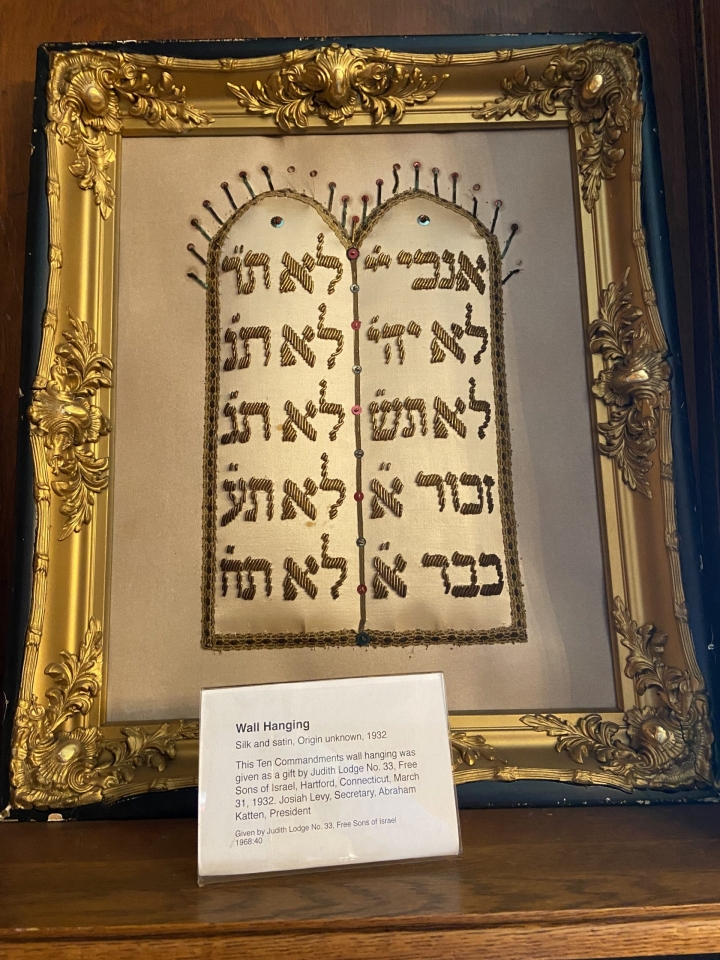 אנכי יי
לא יהי״
לא תש״
זכור א״
כבד א״
לא תר״
לא תנ״
לא תג״
לא תע״
לא תח״
Wall Hanging
Silk and satin, Origin unknown, 1932
This Ten Commandments wall hanging was
given as a gift by Judith Lodge No. 33, Free
Sons of Israel, Hartford, Connecticut, March
31, 1932. Josiah Levy, Secretary, Abraham
Katten, President
Given by Judith Lodge No. 33, Free Sons of Israel
1968:40